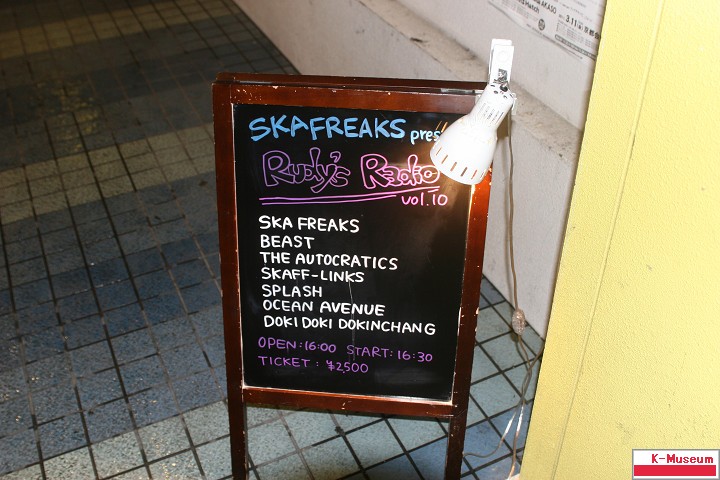 SKAFREAKS pres
Rudy's Radio
vol.10
SKA FREAKS
BEAST
THE AUTOCRATICS
SKAFF-LINKS
SPLASH
OCEAN AVENUE
DOKI DOKI DOKINCHANG
OPEN:16:00 START:16:30
TICKET: ¥2,500
3.11
K-Museum